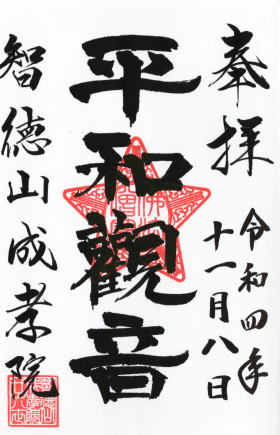 奉拝
令和四年
十一月八日
平和觀音
智徳山成孝院